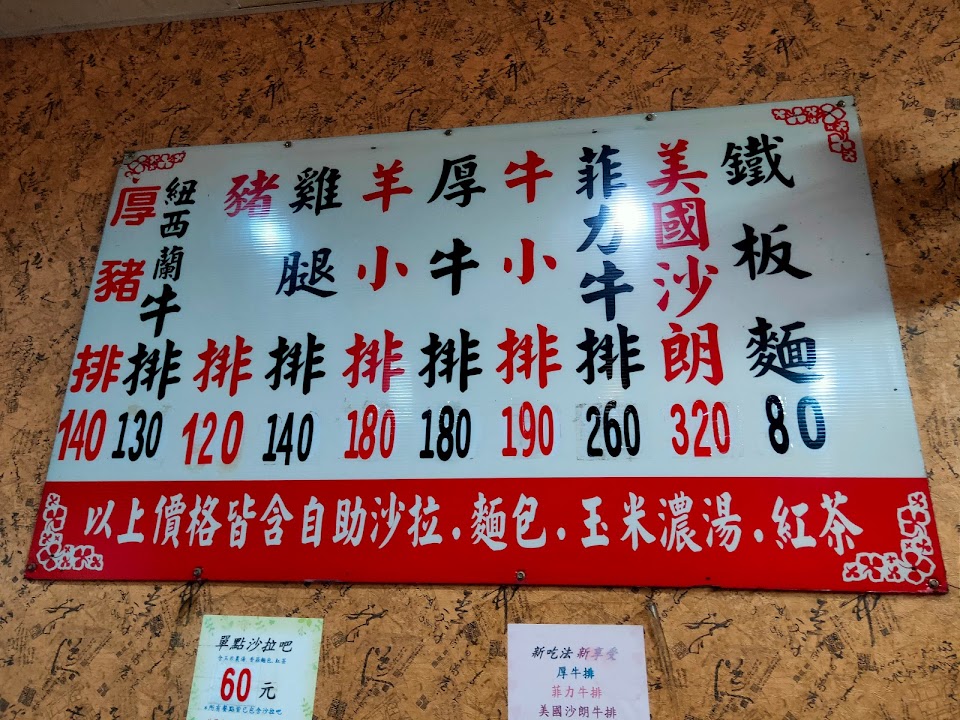 鐵板麵
80
美國沙朗
320
菲力牛排
260
牛小排
190
厚牛排
180
羊小排
180
雞腿排
140
豬排
120
紐西蘭牛排
130
厚豬排
140
以上價格皆含自助沙拉.麵包.玉米濃湯.紅茶
單點沙拉吧
60元
餐點皆已包含沙拉吧
新吃法 新享受
厚牛排
菲力牛排
美國沙朗牛排